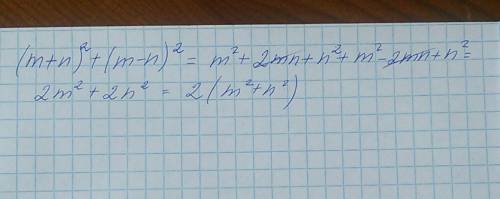 (m+n)² + (m-n)² = m² + 2mn + n² + m² - 2mn + n² =
2m² + 2n² = 2(m² + n²)